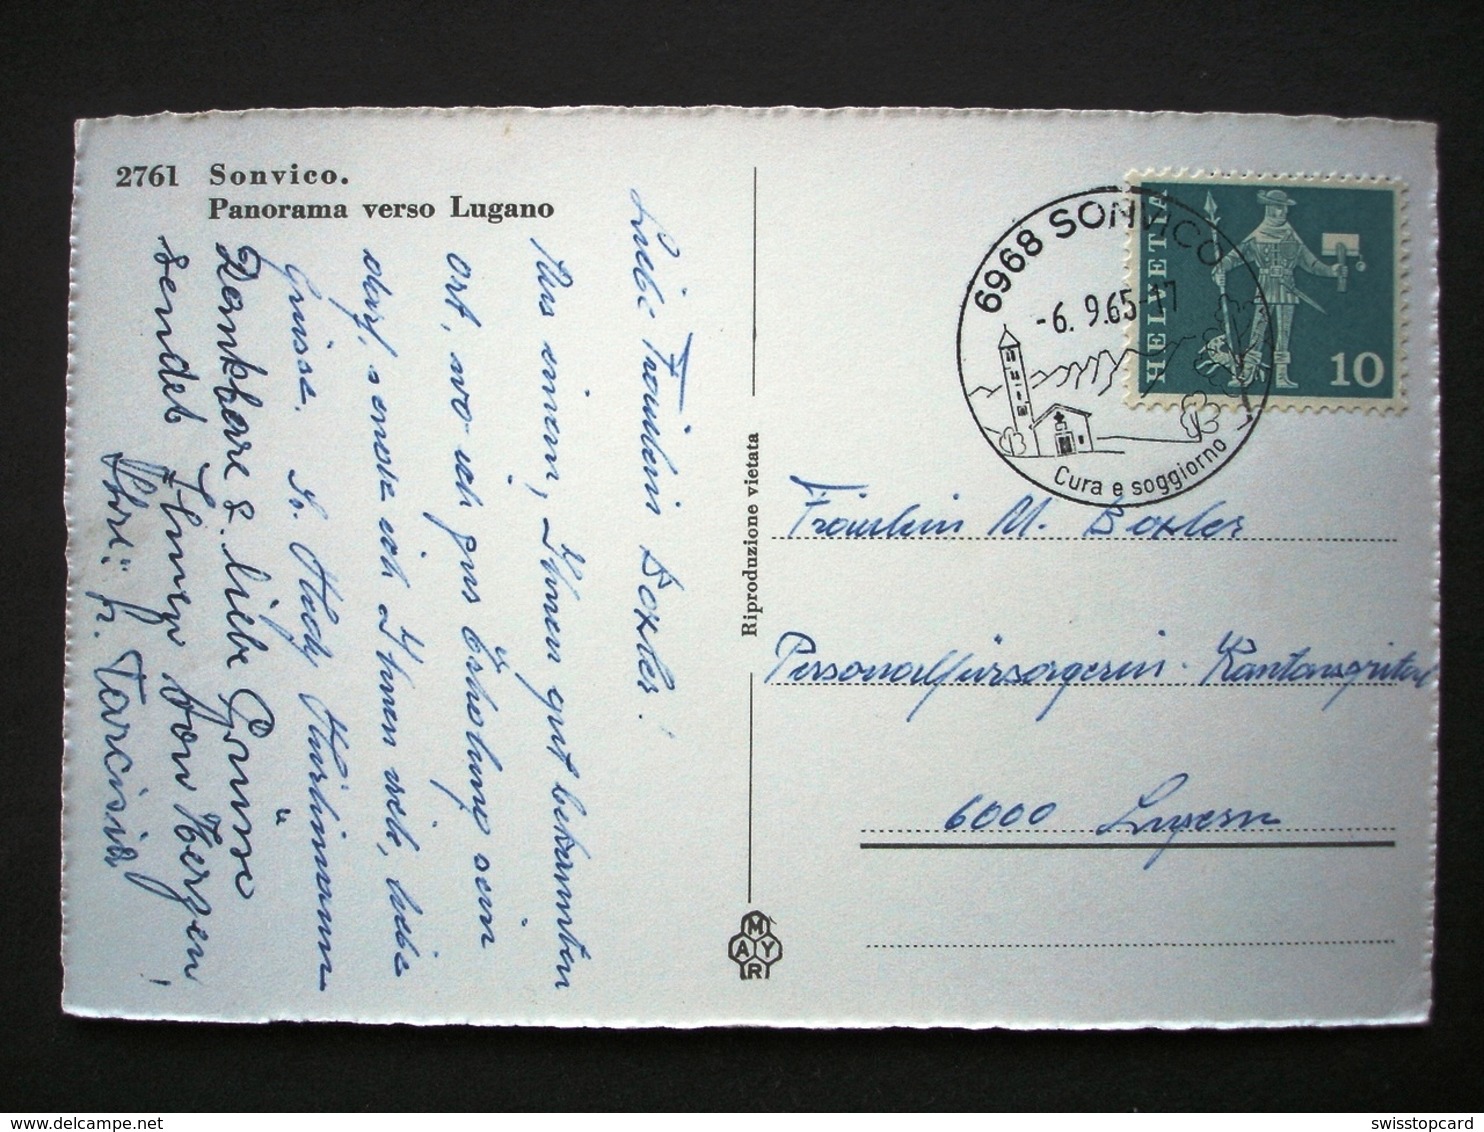 2761 Sonvico.
Panorama verso Lugano
Liebe Fräulein Boxler!
Aus einem, Ihnen gut bekannten
Ort, wo ich zur Erholung sein
darf, sende ich Ihnen viele, liebe
Grüsse. Sr. Hedy Hürlimann
Dankbare & liebe Grüsse
sendet Ihnen von Herzen
Ihre Sr. Tarcisia
Riproduzione vietata
MAYR
6968 SONVICO
-6. 9.65-17
Cura e soggiorno
HELVETIA
10
Fräulein M. Boxler
Personalfürsorgerin. Kantonsspital
6000 Luzern
delcampe.net
swisstopcard